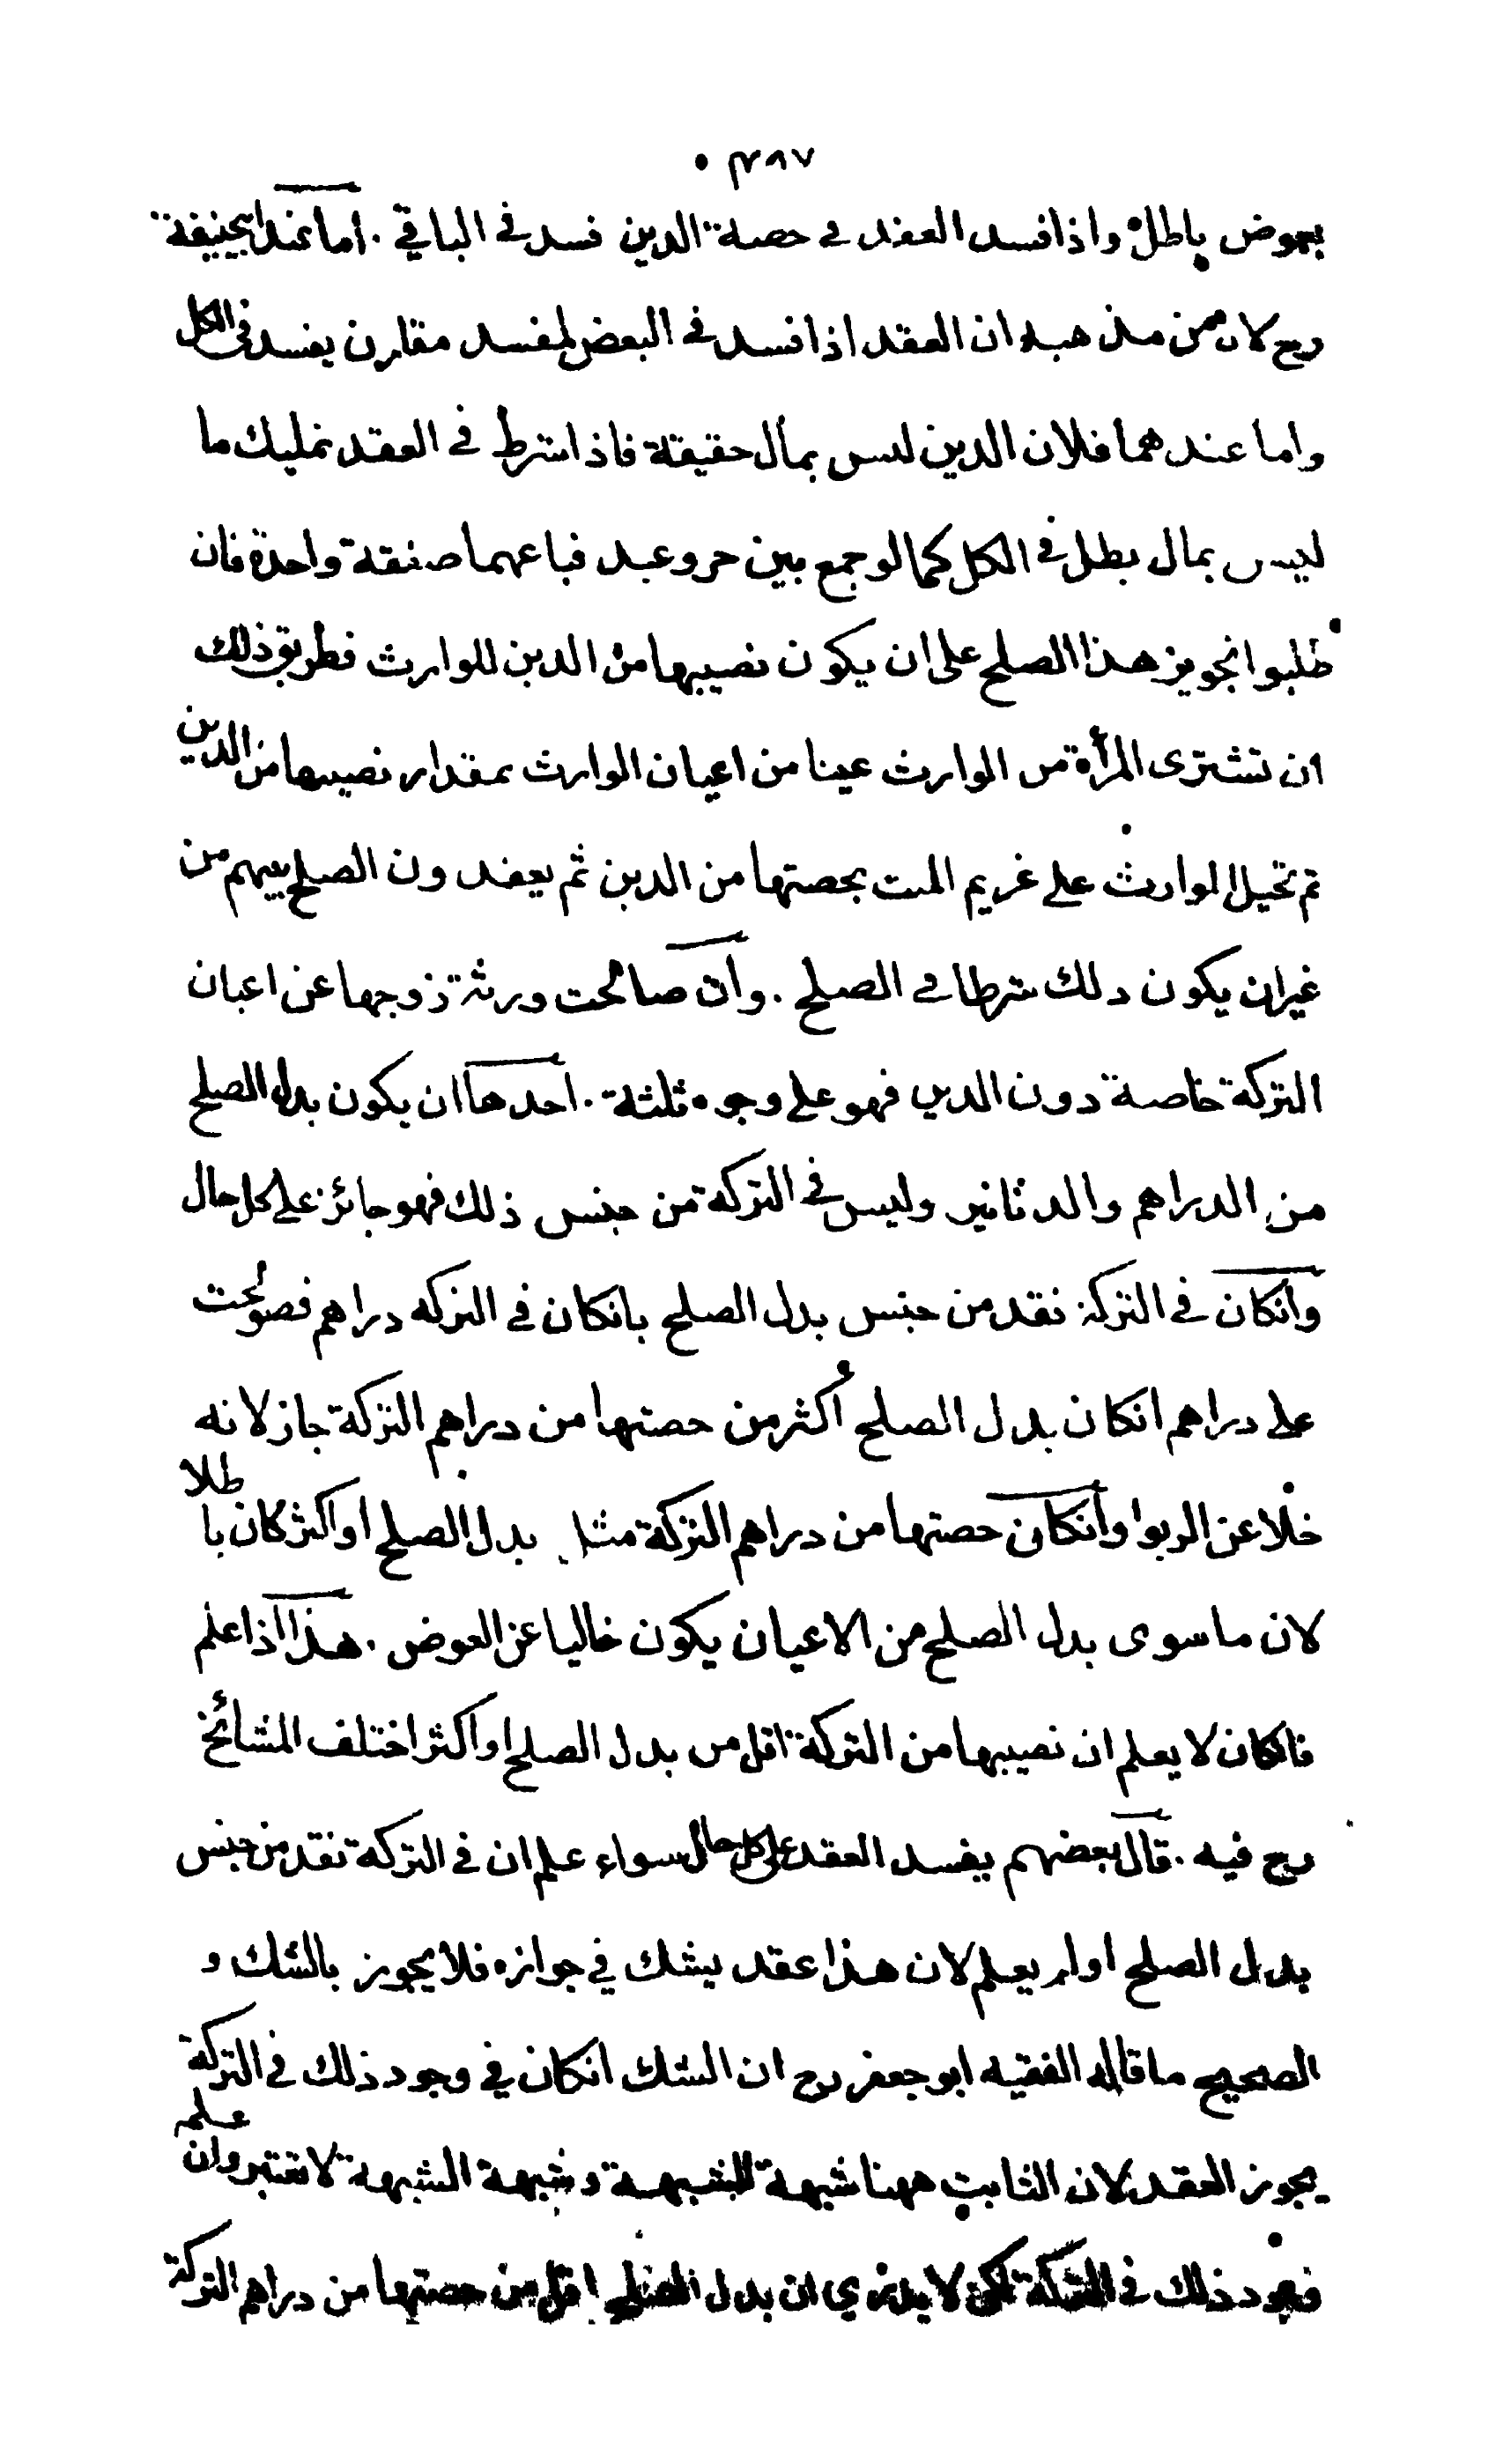 ٣٨٧ •
بعوض باطل واذا فسد العقد في حصة الدين فسد في الباقي . اما عند ابيحنيفة
رح لان من مذهبه ان العقد اذا فسد في البعض لمفسد مقارن يفسد في الكل
واما عندهما فلان الدين ليس بمال حقيقة فاذا شرط في العقد تمليك ما
ليس بمال بطل في الكل كما لو جمع بين حر وعبد فباعهما صفقة واحدة فان
طلبوا تجويز هذا الصلح على ان يكون نصيبها من الدين للوارث فطريق ذلك
ان تشترى المرأة من الوارث عينا من اعيان الوارث بمقدار نصيبها من الدين
ثم تحيل الوارث على غريم الميت بحصتها من الدين ثم يعقدون الصلح بينهم من
غير ان يكون ذلك شرطا في الصلح . وان صالحت ورثة زوجها عن اعيان
التركة خاصة دون الدين فهو على وجوه ثلثة . احدها ان يكون بدل الصلح
من الدراهم والدنانير وليس في التركة من جنس ذلك فهو جائز على كل حال
وانكان في التركة نقد من جنس بدل الصلح بانكان في التركه دراهم فصولحت
على دراهم انكان بدل الصلح أكثر من حصتها من دراهم التركة جاز لانه
خلا عن الربوا وانكان حصتها من دراهم التركة مثل بدل الصلح او اكثر كان باطلا
لان ما سوى بدل الصلح من الاعيان يكون خاليا عن العوض . هذا اذا علم
فانكان لا يعلم ان نصيبها من التركة اقل من بدل الصلح او اكثر اختلف المشائخ
رح فيه . قال بعضهم يفسد العقد على كل حال سواء علم ان في التركة نقد من جنس
بدل الصلح او لم يعلم لان هذا عقد يشك في جوازه فلا يجوز بالشك و
الصحيح ما قاله الفقيه ابو جعفر رح ان الشك انكان في وجود ذلك في التركة
يجوز العقد لان الثابت ههنا شبهة الشبهة وشبهة الشبهة لا تعتبر وان علم
وجود ذلك في التركة لكن لا يدري ان بدل الصلح اقل من حصتها من دراهم التركة